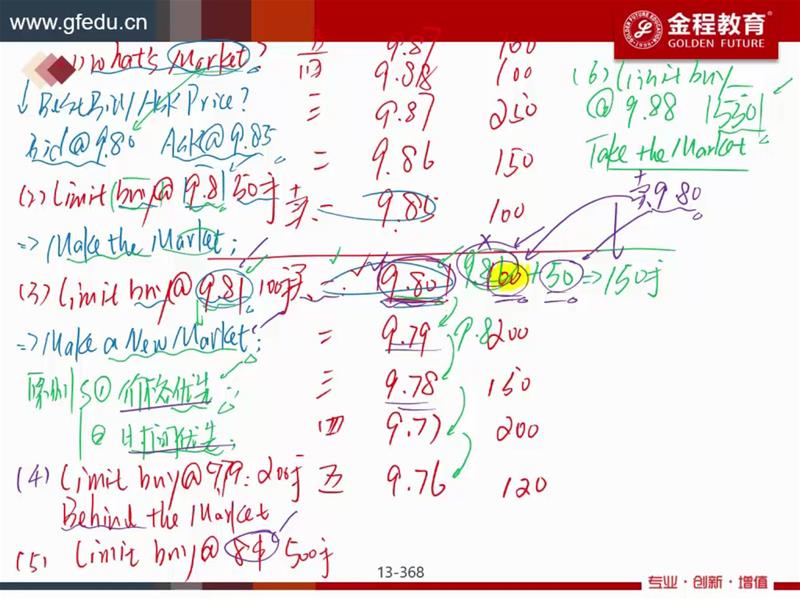 www.gfedu.cn
金程教育
GOLDEN FUTURE
(1) What's Market?
Best Bid/Ask Price?
Bid@9.80 Ask@9.85
(2) Limit buy@9.81 50手
=> Make the Market;
(3) Limit buy@9.81 100手
=> Make a New Market;
原则 ① 价格优先
② 时间优先;
(4) Limit buy@9.79: 200手
Behind the Market
(5) Limit buy@ 500手
五 9.87 100
四 9.88 100
三 9.87 250
二 9.86 150
卖一 9.85 100
9.80 100 + 50 => 150手
二 9.79 200
三 9.78 150
四 9.77 200
五 9.76 120
(6) Limit buy
@ 9.88
Take the Market
卖 9.80
13-368
专业·创新·增值